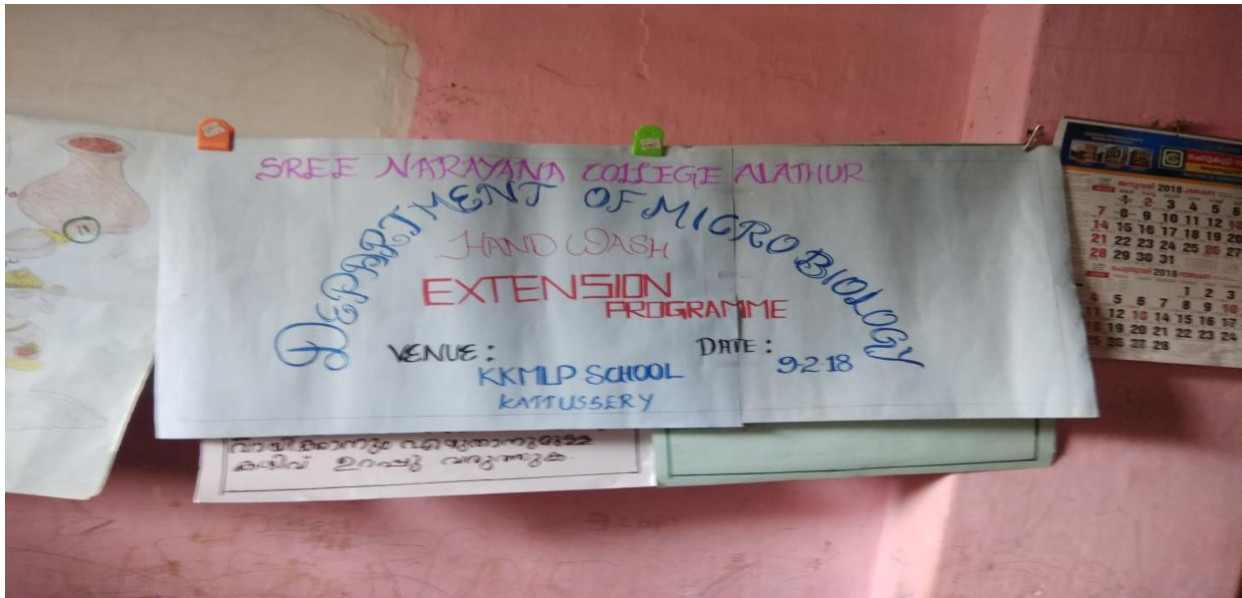 SREE NARAYANA COLLEGE ALATHUR
DEPARTMENT OF MICROBIOLOGY
HAND WASH
EXTENSION
PROGRAMME
VENUE :
DATE :
KKMLP SCHOOL
9-2-18
KATTUSSERY
വായിക്കാനും എഴുതാനുമുള്ള
കഴിവ് ഉറപ്പു വരുത്തുക.
ജനുവരി 2018 JANUARY
1 2 3 4 5 6
7 8 9 10 11 12 13
14 15 16 17 18 19 20
21 22 23 24 25 26 27
28 29 30 31
ഫെബ്രുവരി 2018 FEBRUARY
1 2 3
4 5 6 7 8 9 10
11 12 13 14 15 16 17
18 19 20 21 22 23 24
25 26 27 28